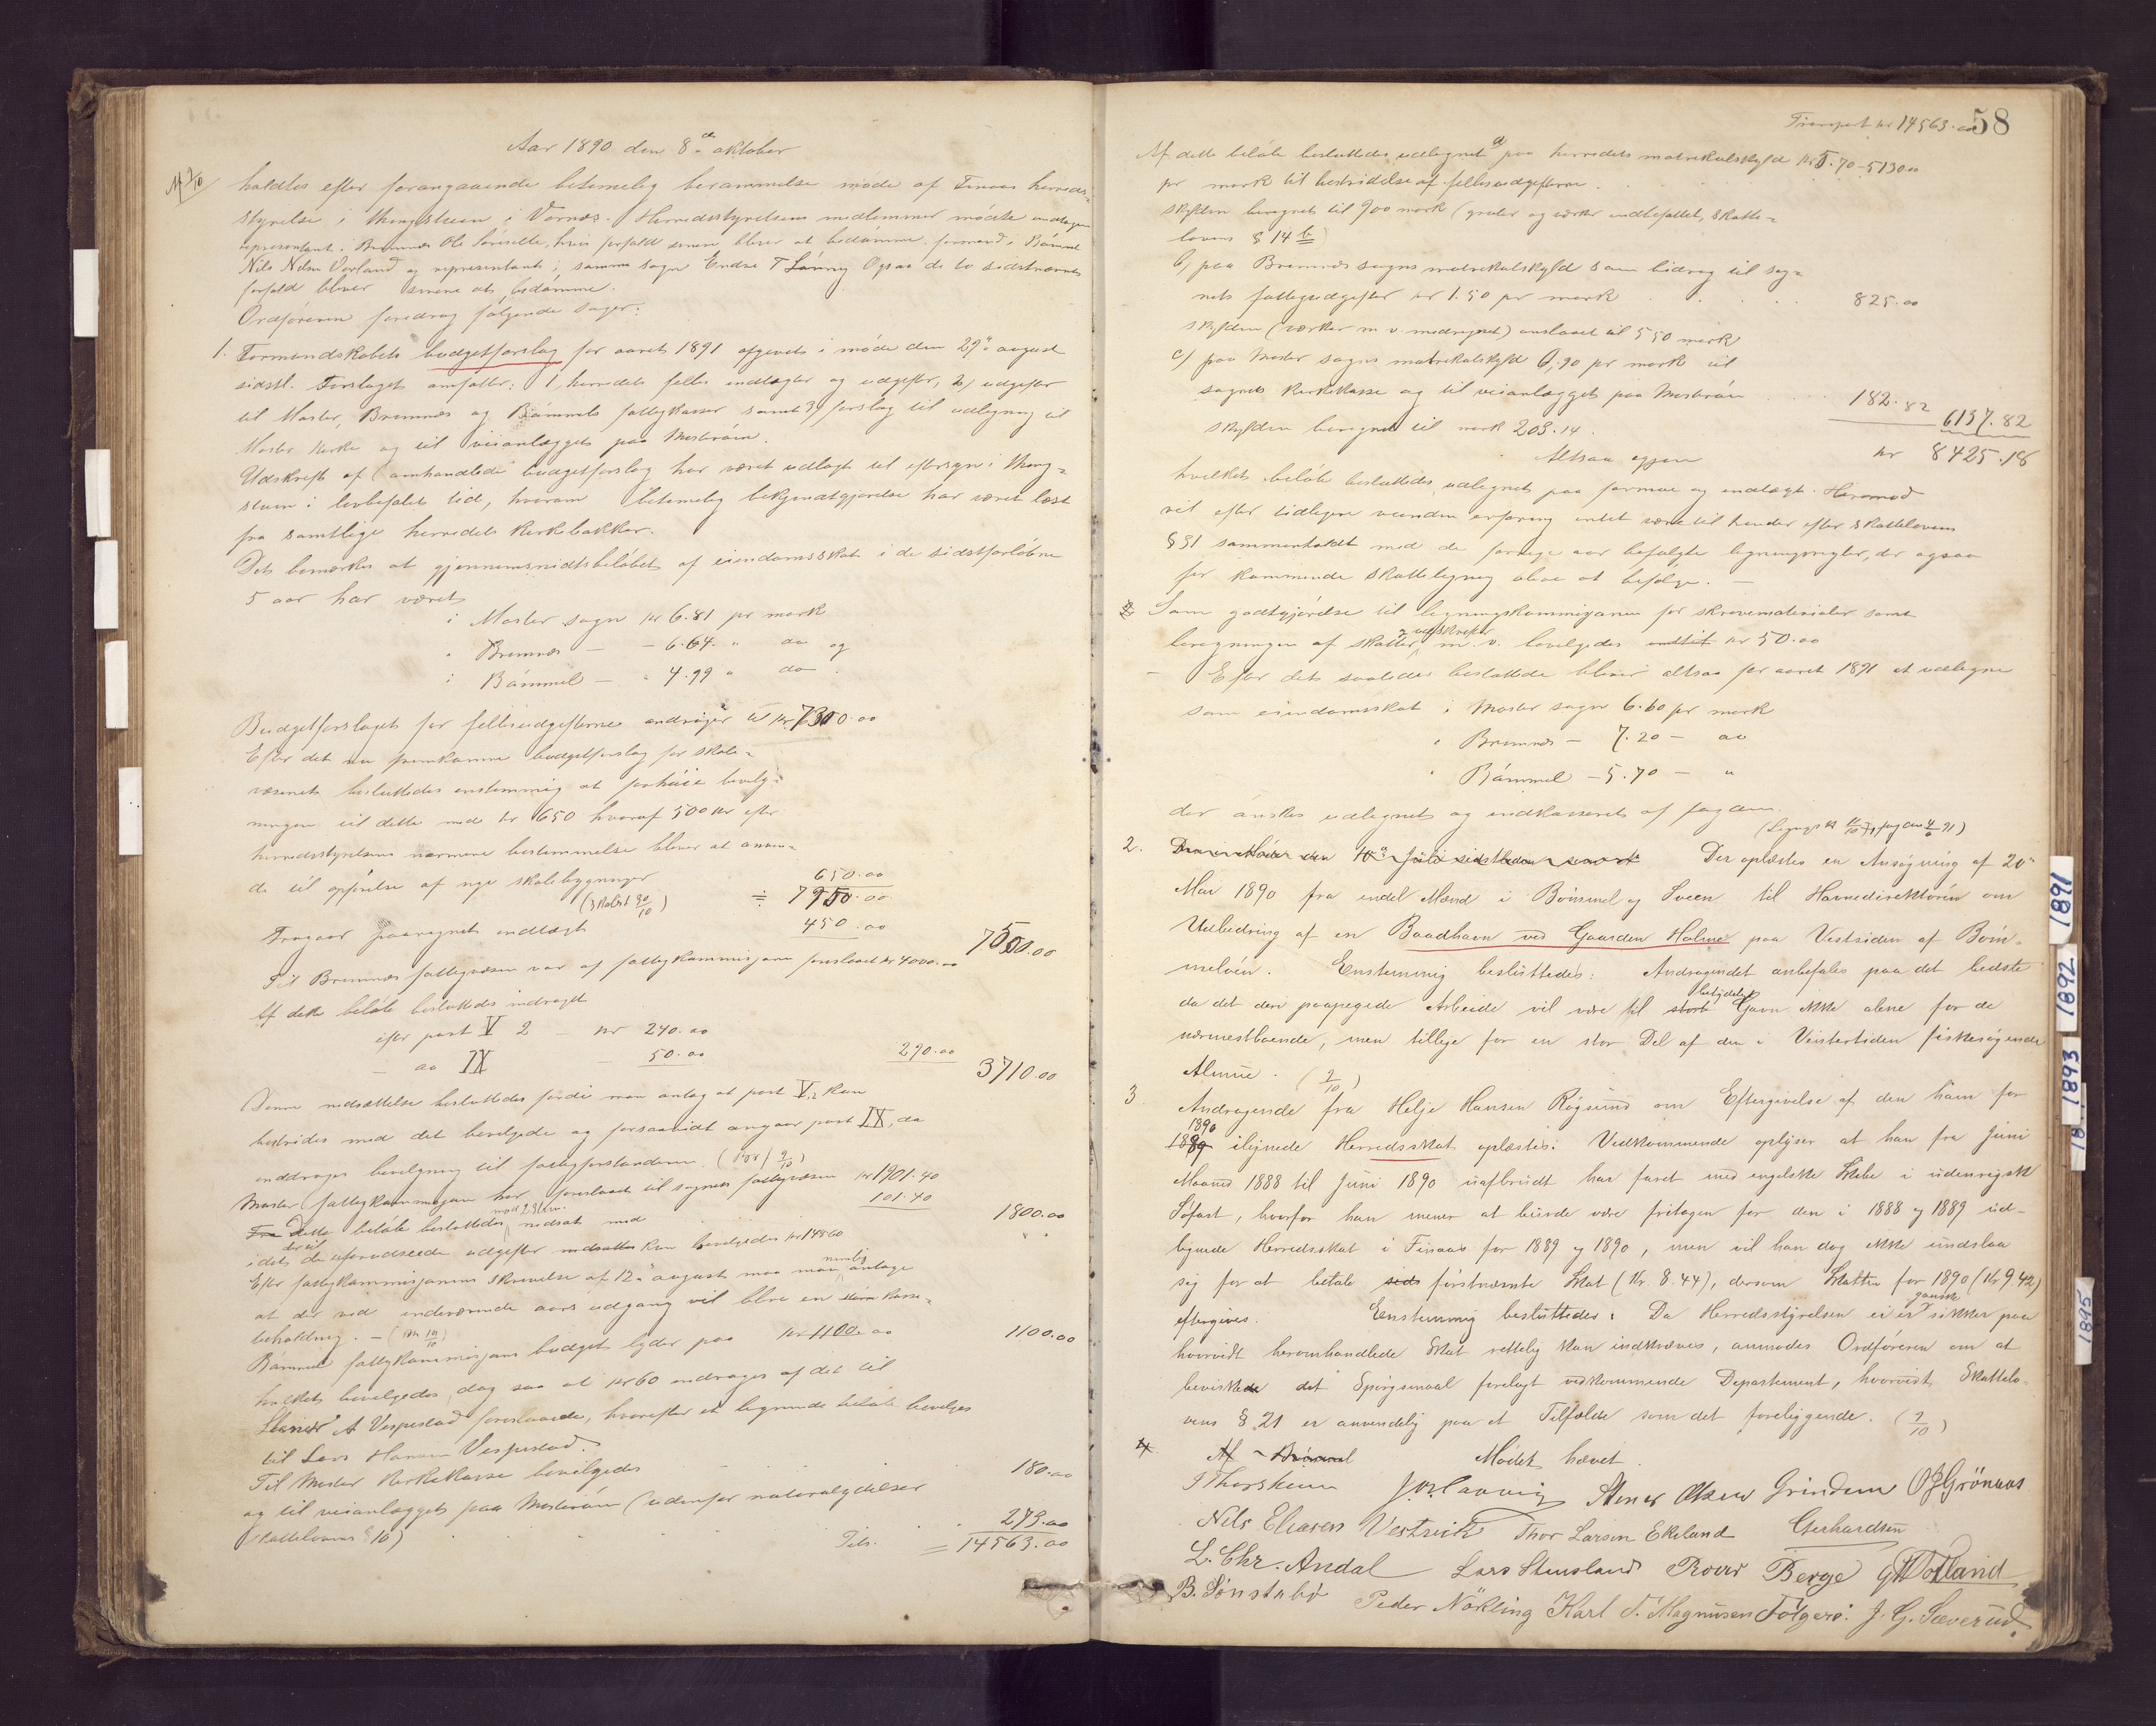 Aar 1890 den 8de oktober
holdtes efter forangaaende betimelig berammelse møde af Finaas herreds-
styrelse i thingstuen i Vornæs. Herredsstyrelsens medlemmer mødte undtagen
repræsentant i Bremnæs Ole, hvis forfald senere bliver at bedømme, formand i Bømmel
Nils Nilsen Vorland og repræsentant i samme sogn Endre T Lønning Ogsaa de to sidstnævntes
forfald bliver senere at bedømme.
Ordføreren foredrog følgende sager:
1. Formandskabets budgetforslag for aaret 1891 afgivets i møde den 29de august
sidstl. Forslaget omfatter: 1, herredets felles indtægter og udgifter, 2, udgifter
til Moster, Bremnæs og Bømmels fattigkasser samt 3, forslag til udligning til
Moster kirke og til veianlægget paa Mosterøen.
Udskrift af omhandlede budgetforslag har været udlagt til eftersyn i thing-
stuen i lovbefalet tid, hvorom betimelig bekjendtgjørelse har været læst
fra samtlige herredets kirkebakker.
Det bemærkes at gjennemsnidtsbeløbet af eiendomsskat i de sidstforløbne
5 aar har været
i Moster sogn kr 6.81 pr mark
" Bremnæs — - 6.64. " do og
i Bømmel — " 4.99 " do.
Budgetforslaget for fellesudgifterne andrager til kr 7300.00
Efter det nu fremkomne budgetforslag for skole-
væsenet besluttedes enstemmig at forhøie bevilg-
ningen til dette med kr 650 hvoraf 500 kr efter
herredsstyrelsens nærmere bestemmelse bliver at anven-
de til opførelse af nye skolebygninger 650.00
(skolest 30/10) ÷ 7950.00
Fragaar paaregnet indtægt 450.00 7500.00
Til Bremnæs fattigvæsen var af fattigkommisjonen foreslaaet kr 4000.00
Af dette beløb besluttedes inddraget
efter post V 2 — kr 240.00
— do IX — 50.00 290.00 3710.00
Denne nedsættelse besluttedes fordi man antog at post V,2 kan
bestrides med det bevilgede og forsaavidt angaar post IX, da
inddrages bevilgning til fattigforstanderen. (9/10)
Moster fattigkommisjon har foreslaaet til sognets fattigvæsen kr 1901.40
Dette beløb besluttedes nedsat med 101.40 1800.00
idet de uforudseede udgifter
Efter fattigkommisjonens skrivelse af 12te august maa man nemlig antage
at der ved indeværende aars udgang vil blive en kasse-
beholdning. —
Bømmel fattigkommisjons budget lyder paa kr 1100.00 1100.00
hvilket bevilgedes, dog saa at kr 60 inddrages af det til
A Vespestad foreslaaede, hvorefter et lignende beløb bevilges
til Lars Hansen Vespestad.
Til Moster kirkekasse bevilgedes 180.00
og til veianlægget paa Mosterøen (udenfor naturalydelser
skattelovens § 10) 273.00
Tils. = 14563.00
58
Transport kr 14563.00
Af dette beløb besluttedes udlignet a paa herredets matrikulskyld kr 5.70 - 5130.00
pr mark til bestridelse af fellesudgifterne.
Skylden beregnet til 900 mark (gruber og værker indbefattet, skatte-
lovens § 14 b)
b, paa Bremnæs sogns matrikulskyld som bidrag til sog-
nets fattigudgifter kr 1.50 pr mark 825.00
skylden (værker m v. medregnet) anslaaet til 550 mark
c, paa Moster sogns matrikulskyld 0,90 pr mark til
sognets kirkekasse og til veianlægget paa Mosterøen 182.82 6137.82
skylden beregnet til mark 203.14.
Altsaa igjen kr 8425.18
hvilket beløb besluttedes udlignet paa formue og indtægt. Herimod
vil efter tidligere vunden erfaring intet være til hinder efter skattelovens
§ 31 sammenholdt med de forrige aar befulgte ligningsregler, der ogsaa
for kommende skatteligning blive at befølge. —
Som godtgjørelse til ligningskommisjonen for skrivematerialer samt
beregningen af skatter, udskrifter m. v. bevilgedes kr 50.00
Efter det saaledes besluttede bliver altsaa for aaret 1891 at udligne
som eiendomsskat i Moster sogn 6.60 pr mark
" Bremnæs — 7.20 — do
" Bømmel — 5.70 — "
der ønskes udlignet og indkasseret af fogden.
2. Der oplæstes en Ansøgning af 20de
Mai 1890 fra endel Mænd i Bømmel og Sveen til Havnedirektøren om
Udbedring af en Baadhavn ved Gaarden Holme paa Vestsiden af Bøm-
meløen. Enstemmig besluttedes: Andragendet anbefales paa det bedste
da det deri paapegede Arbeide vil være til stort betydelig Gavn ikke alene for de
nærmestboende, men tillige for en stor Del af den i Vintertiden fiskesøgende
Almue. (9/10)
3. Andragende fra Helje Hansen Røgsund om Eftergivelse af den ham for
1889 1890 ilignede Herredsskat oplæstes: Vedkommende oplyser at han fra Juni
Maaned 1888 til Juni 1890 uafbrudt har faret med engelske Skibe i udenrigsk
Søfart, hvorfor han mener at burde være fritagen for den i 1888 og 1889 ud-
lignede Herredsskat i Finaas for 1889 og 1890, men vil han dog ikke undslaa
sig for at betale sids førstnævnte Skat (Kr. 8.44), dersom Skatten for 1890 (Kr 9.42)
eftergives. Enstemmig besluttedes: Da Herredsstyrelsen ei er ganske sikker paa
hvorvidt heromhandlede Skat rettelig kan indkræves, anmodes Ordføreren om at
bevirkede det Spørgsmaal forelagt vedkommende Departement, hvorvidt Skattelo-
vens § 21 er anvendelig paa et Tilfælde som det foreliggende. (9/10)
4. Af - Bømmel Mødet hævet.
T Thorsheim Stener Olsen Grindem O J Grönaas
Nils Eliasen Vestvik Thor Larsen Ekeland Gerhardsen
L. Chr. Andal Lars Stensland Roar Berge
B. Sønstabø Peder Nökling Karl T. Magnusen Folgerø. J. G. Sæverud.
1891
1892
1893
18
1895